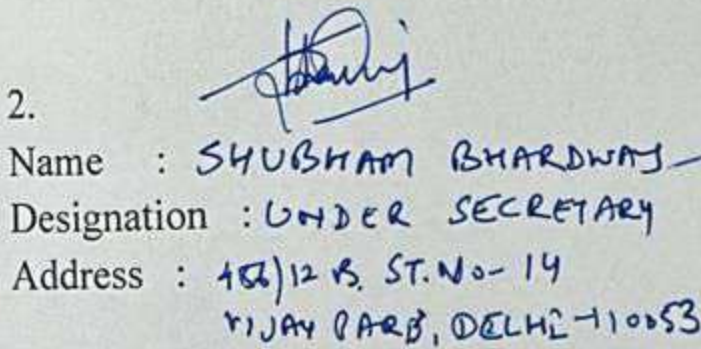 2.
Name : SHUBHAM BHARDWAJ
Designation : UNDER SECRETARY
Address : 12 B, ST. No- 14
VIJAY PARK, DELHI-110053